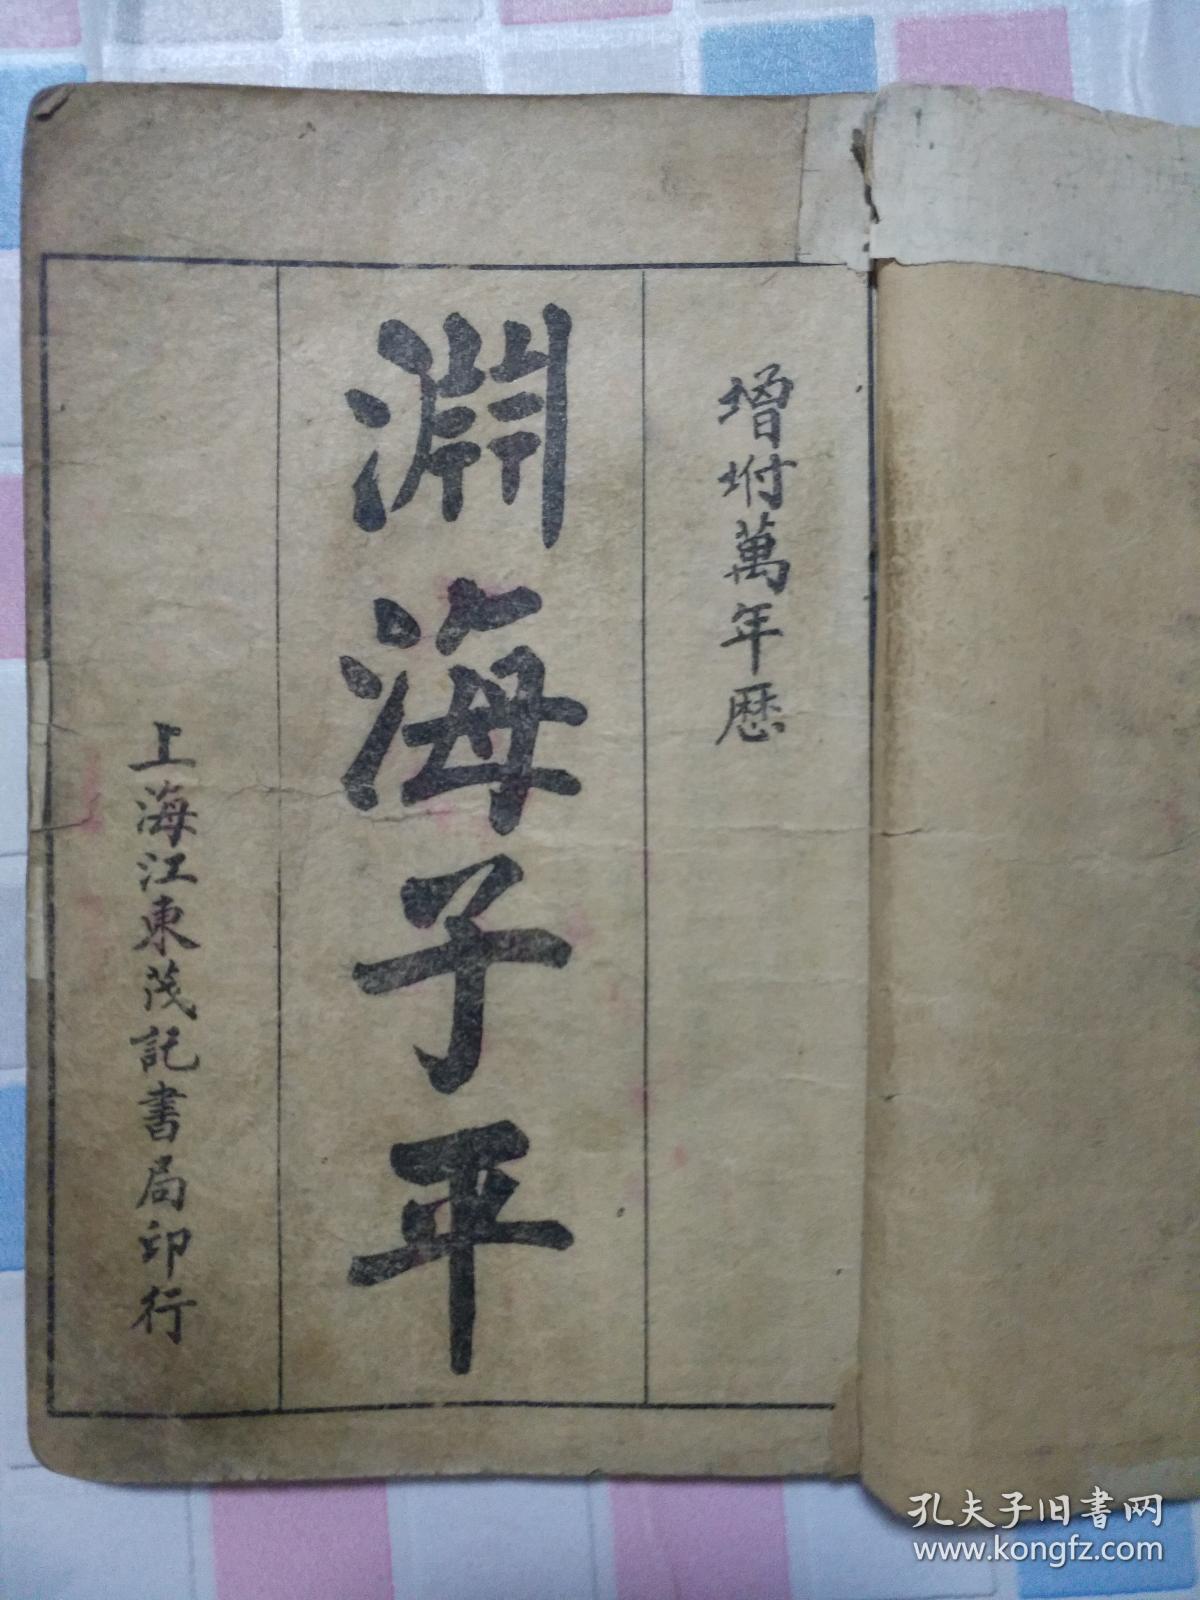 增坿萬年歷
淵海子平
上海江東茂記書局印行
孔夫子旧书网
www.kongfz.com